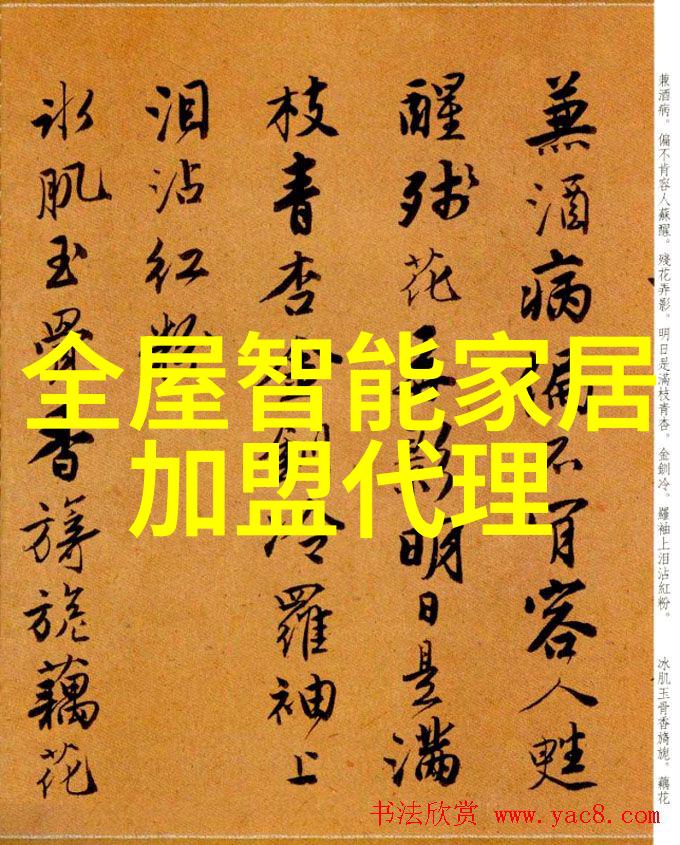 兼酒病。偏不肯容人蘇醒。殘花弄影。明日是滿枝青杏。金釧冷。羅袖上泪沾紅粉。
冰肌玉骨香旖旎。藕花
兼酒病偏不肯容人甦
醒殘花弄影明日是滿
枝青杏金釧冷羅袖上
泪沾紅粉
冰肌玉骨香旖旎藕花
全屋智能家居
加盟代理
书法欣赏 www.yac8.com